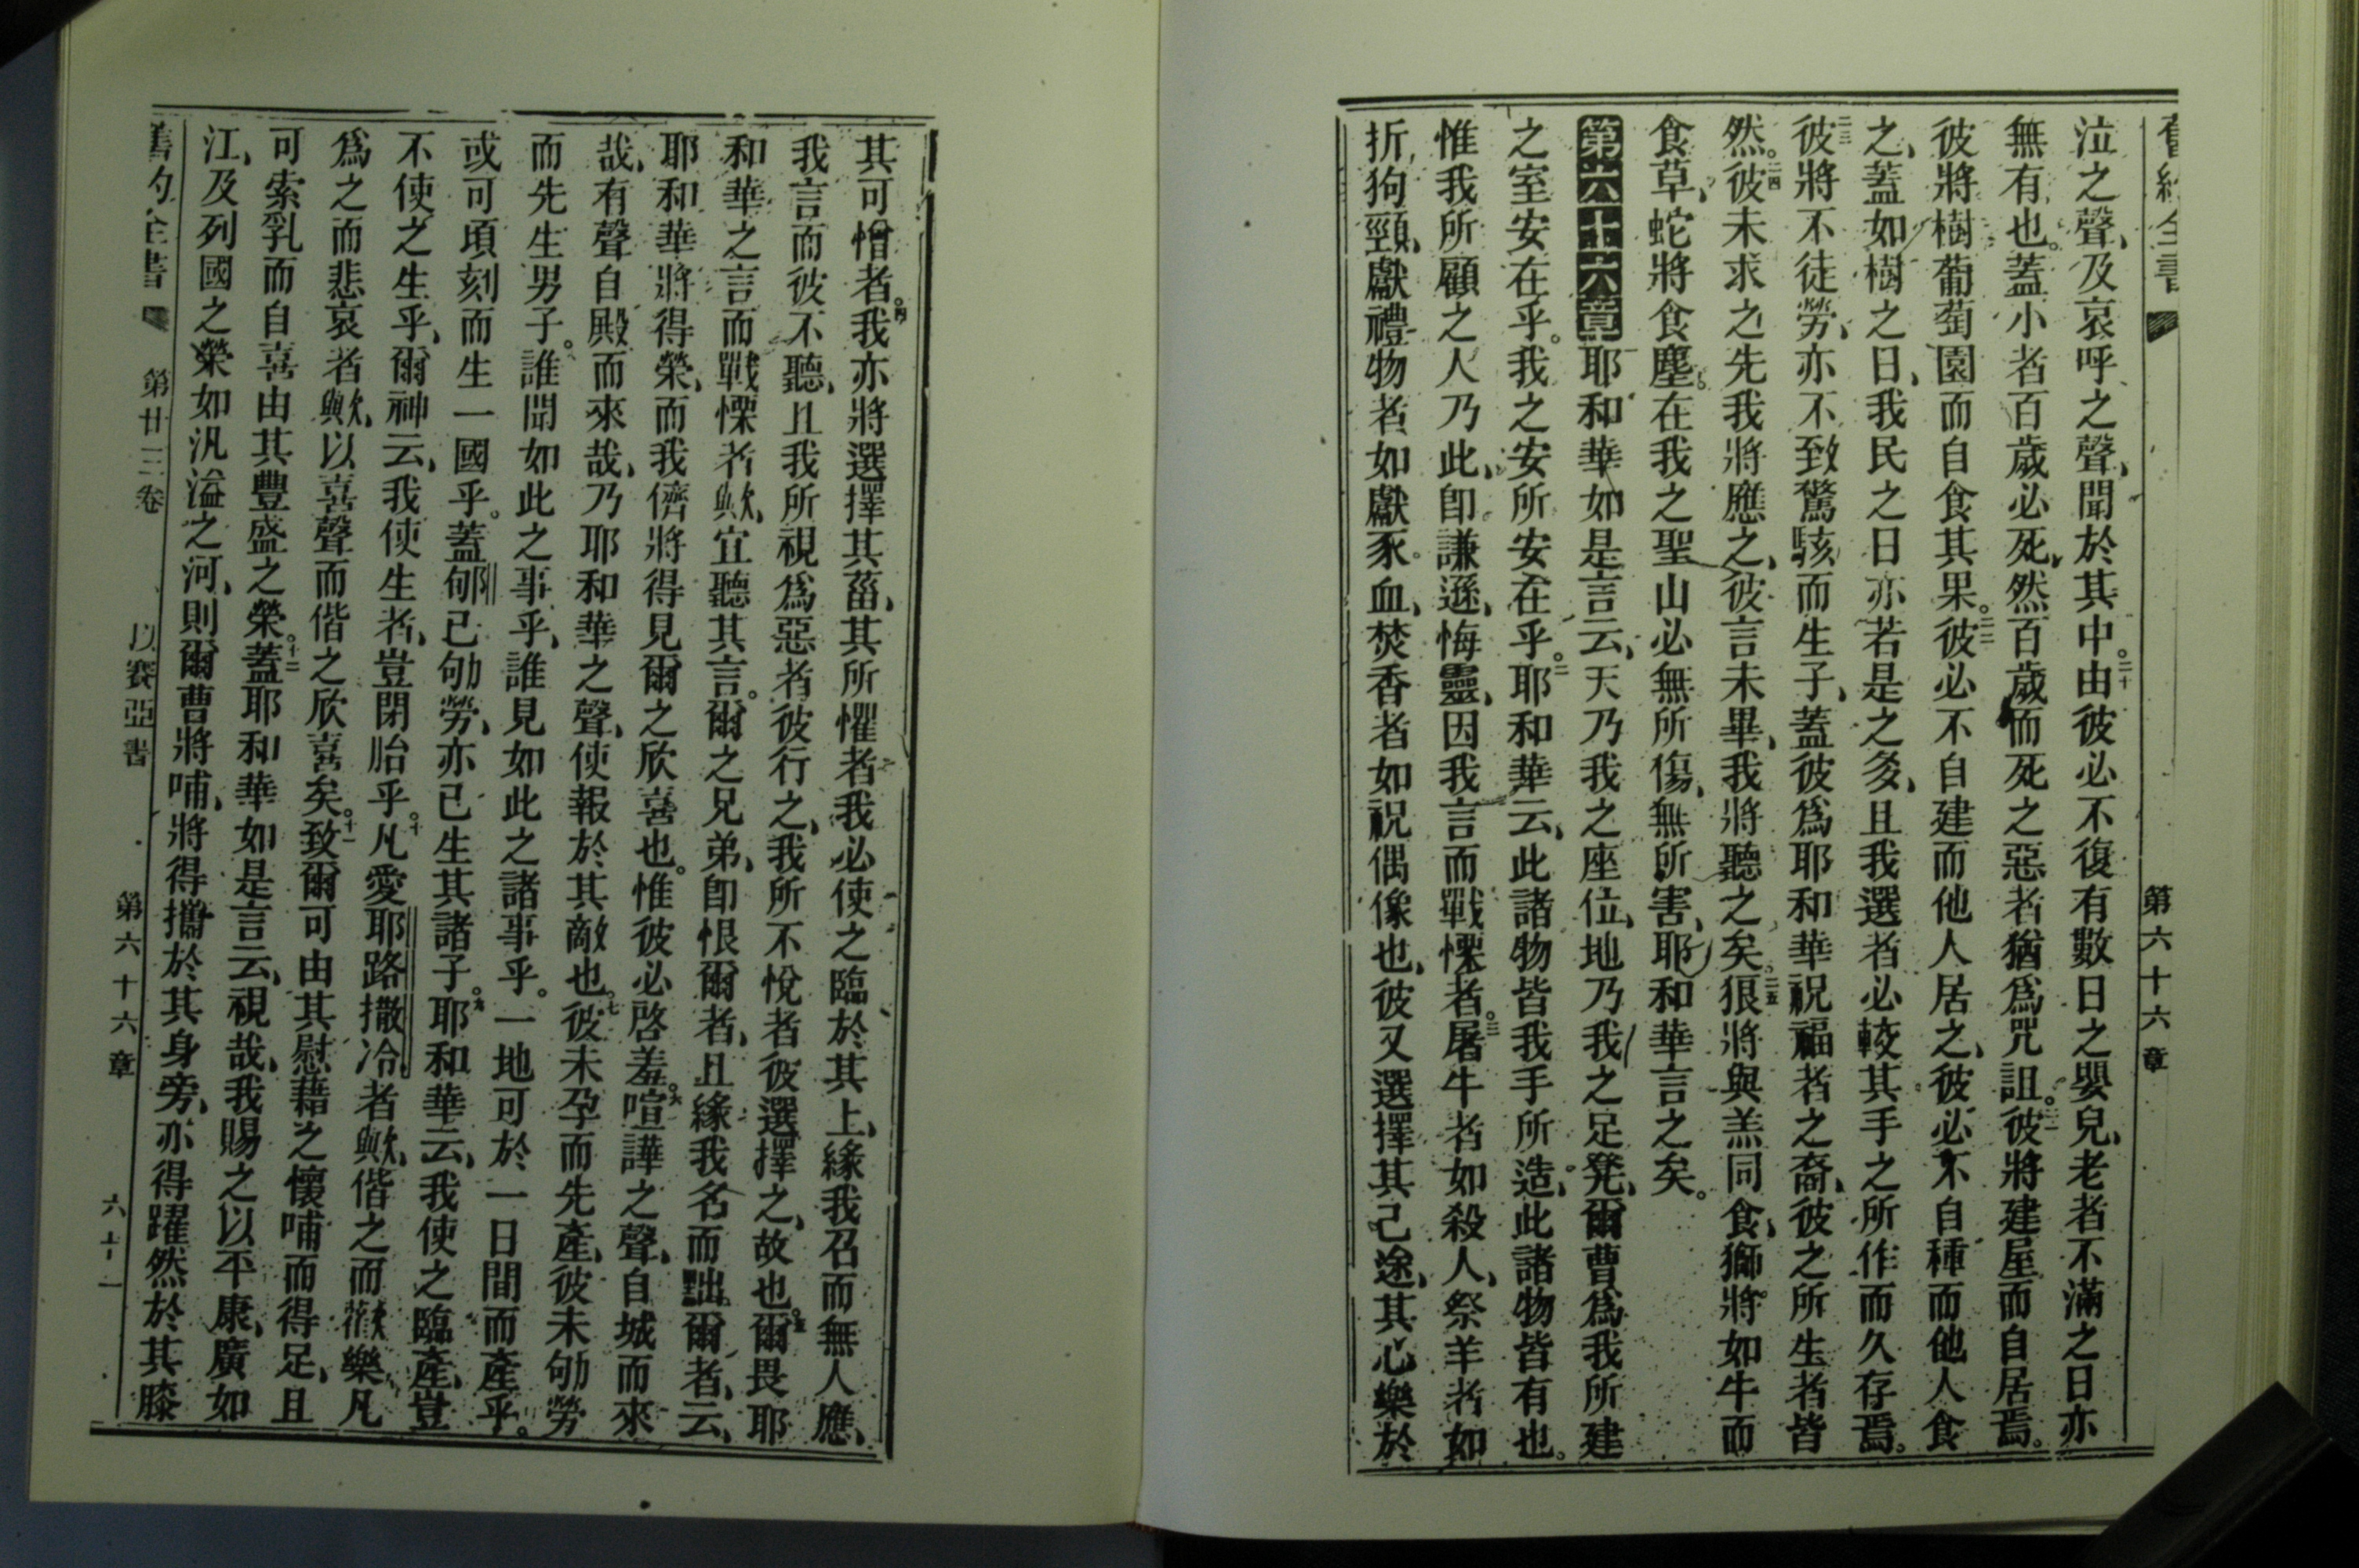 舊約全書 第六十六章
泣之聲、及哀呼之聲、聞於其中。二十由彼必不復有數日之嬰兒、老者不滿之日亦
無有也。蓋小者百歲必死、然百歲而死之惡者猶爲咒詛。二一彼將建屋而自居焉。
彼將樹葡萄園而自食其果。二二彼必不自建而他人居之、彼必不自種而他人食
之、蓋如樹之日、我民之日亦若是之多、且我選者必較其手之所作而久存焉。
二三彼將不徒勞、亦不致驚駭而生子、蓋彼爲耶和華祝福者之裔、彼之所生者皆
然。二四彼未求之先我將應之、彼言未畢、我將聽之矣。二五狠將與羔同食、獅將如牛而
食草、蛇將食塵。在我之聖山必無所傷、無所害、耶和華言之矣。
第六十六章耶和華如是言云、天乃我之座位、地乃我之足凳、爾曹爲我所建
之室安在乎。我之安所安在乎。二耶和華云、此諸物皆我手所造、此諸物皆有也。
惟我所顧之人乃此、卽謙遜、悔靈、因我言而戰慄者。三屠牛者如殺人、祭羊者如
折狗頸、獻禮物者如獻豕血、焚香者如祝偶像也、彼又選擇其己途、其心樂於
其可憎者。四我亦將選擇其菑、其所懼者我必使之臨於其上、緣我召而無人應、
我言而彼不聽、且我所視爲惡者彼行之、我所不悅者彼選擇之、故也。五爾畏耶
和華之言而戰慄者歟、宜聽其言。爾之兄弟、卽恨爾者、且緣我名而黜爾者、云、
耶和華將得榮、而我儕將得見爾之欣喜也。惟彼必啓羞。六喧譁之聲、自城而來
哉、有聲自殿而來哉、乃耶和華之聲、使報於其敵也。七彼未孕而先產、彼未劬勞
而先生男子。誰聞如此之事乎、誰見如此之諸事乎。一地可於一日間而產乎。
或可頃刻而生一國乎。蓋郇已劬勞、亦已生其諸子。九耶和華云、我使之臨產、豈
不使之生乎、爾神云、我使生者、豈閉胎乎。十凡愛耶路撒冷者歟、偕之而歡樂、凡
爲之而悲哀者歟、以喜聲而偕之欣喜矣。十一致爾可由其慰藉之懷哺而得足、且
可索乳而自喜由其豐盛之榮。十二蓋耶和華如是言云、視哉、我賜之以平康、廣如
江、及列國之榮如汎溢之河、則爾曹將哺、將得攜於其身旁、亦得躍然於其膝
舊約全書 第廿三卷 以賽亞書 第六十六章 六十一